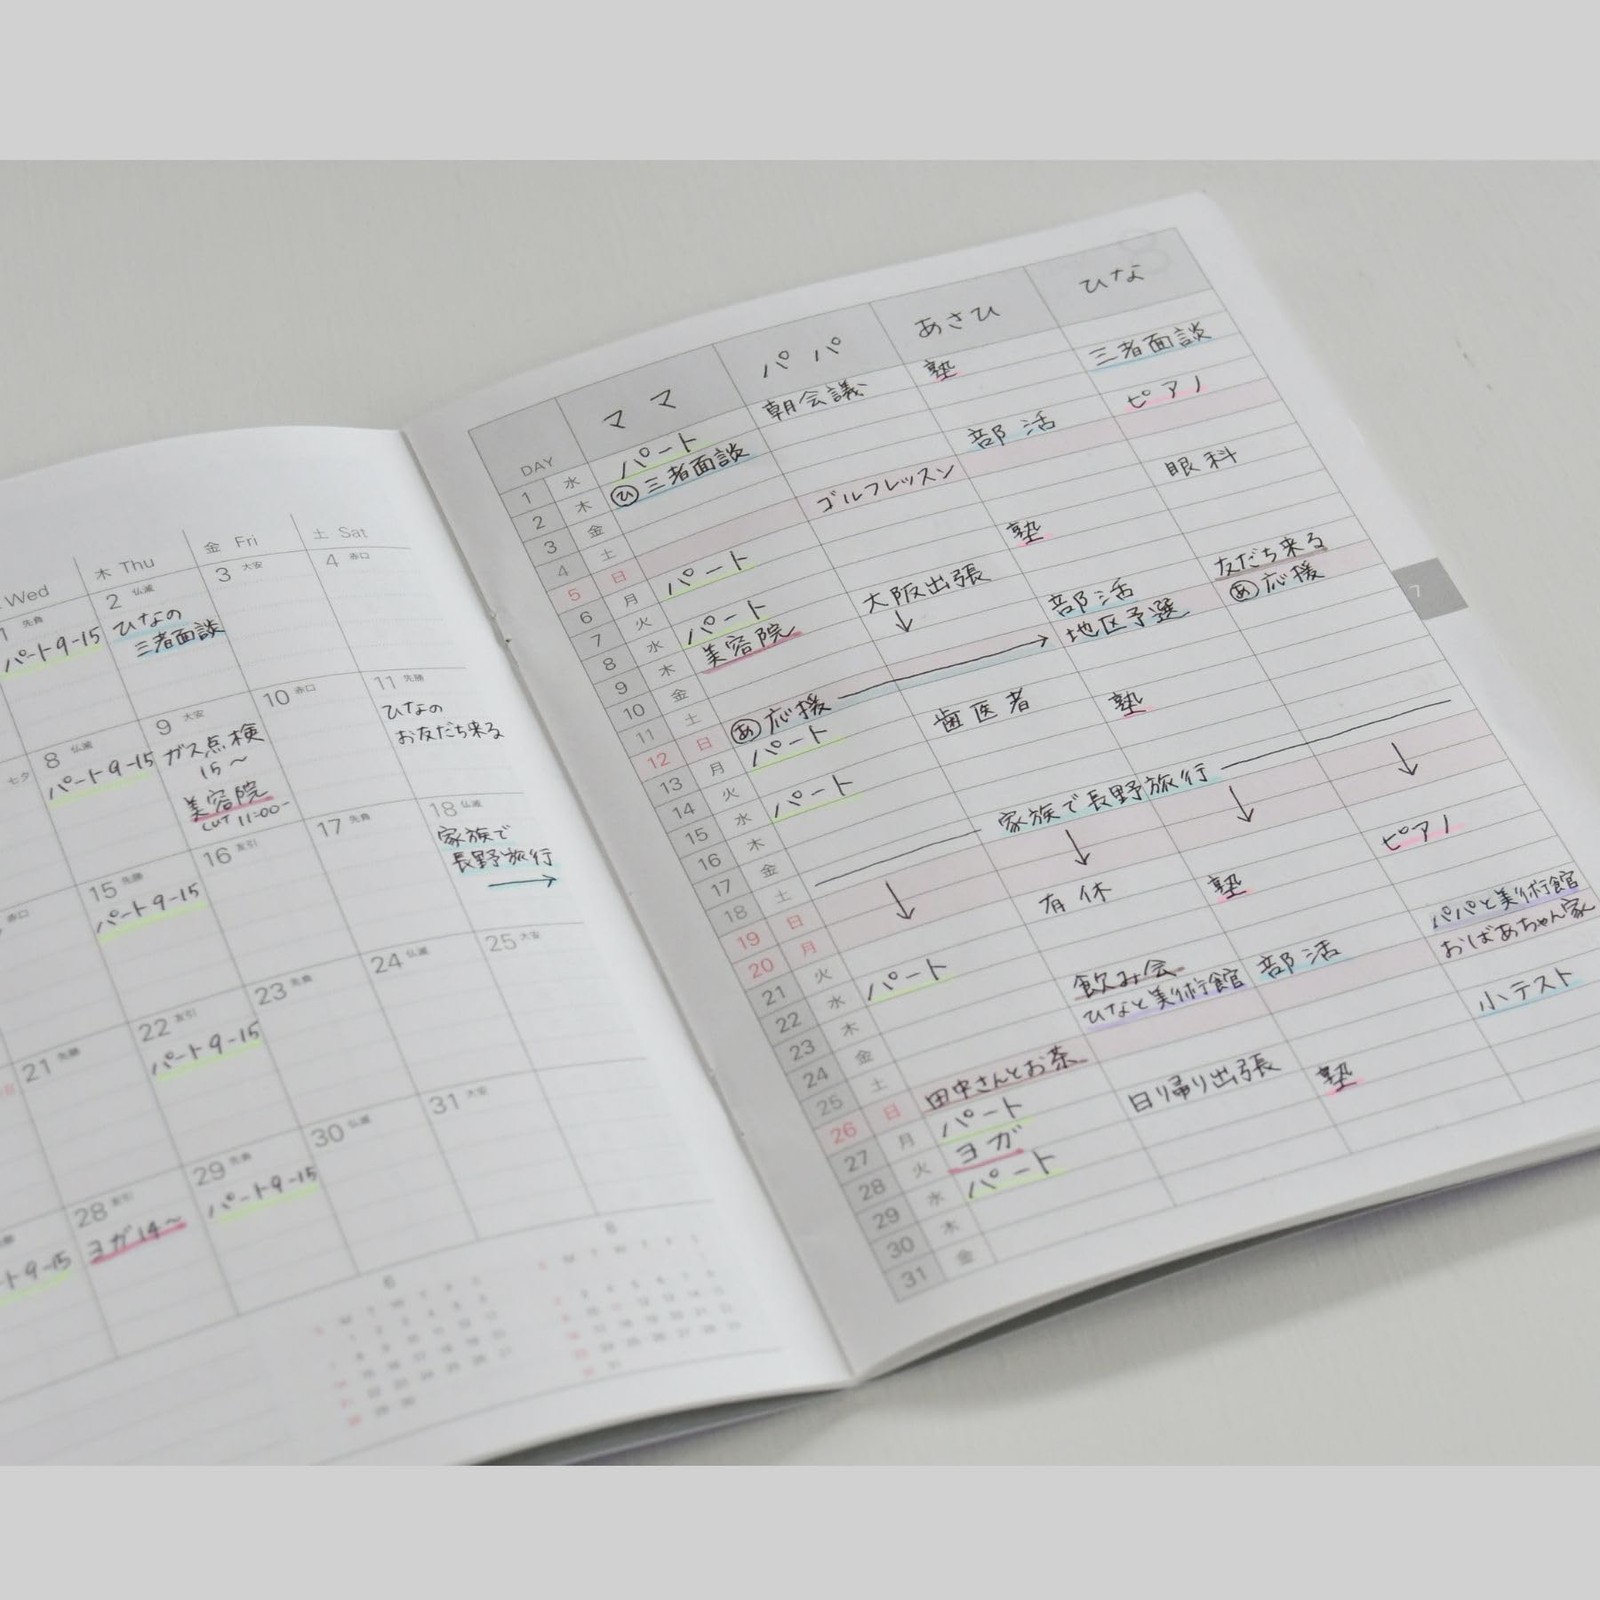 Wed
木 Thu
金 Fri
土 Sat
1 先負
パート9-15
2 仏滅
ひなの
三者面談
3 大安
4 赤口
七夕
8 仏滅
パート9-15
9 大安
ガス点検
15〜
美容院
CUT 11:00-
10 赤口
11 先勝
ひなの
お友だち来る
赤口
15 先勝
パート9-15
16 友引
17 先負
18 仏滅
家族で
長野旅行
21 先勝
22 友引
パート9-15
23 先負
24 仏滅
25 大安
ート9-15
28 友引
ヨガ14〜
29 先負
パート9-15
30 仏滅
31 大安
6
8
DAY
ママ
パパ
あさひ
ひな
1 水 パート 朝会議 塾
2 木 ㋪三者面談 三者面談
3 金
4 土 部活 ピアノ
5 日 ゴルフレッスン
6 月 パート
7 火 眼科
8 水 パート 大阪出張 塾
9 木 美容院
10 金
11 土 部活 友だち来る
12 日 あ応援 地区予選 あ応援
13 月 パート
14 火
15 水 パート 歯医者 塾
16 木
17 金
18 土 家族で長野旅行
19 日
20 月
21 火
22 水 パート 有休 塾
23 木 ピアノ
24 金 飲み会
25 土 ひなと美術館 部活 パパと美術館
26 日 田中さんとお茶 おばあちゃん家
27 月 パート
28 火 ヨガ 小テスト
29 水 パート 日帰り出張 塾
30 木
31 金
7